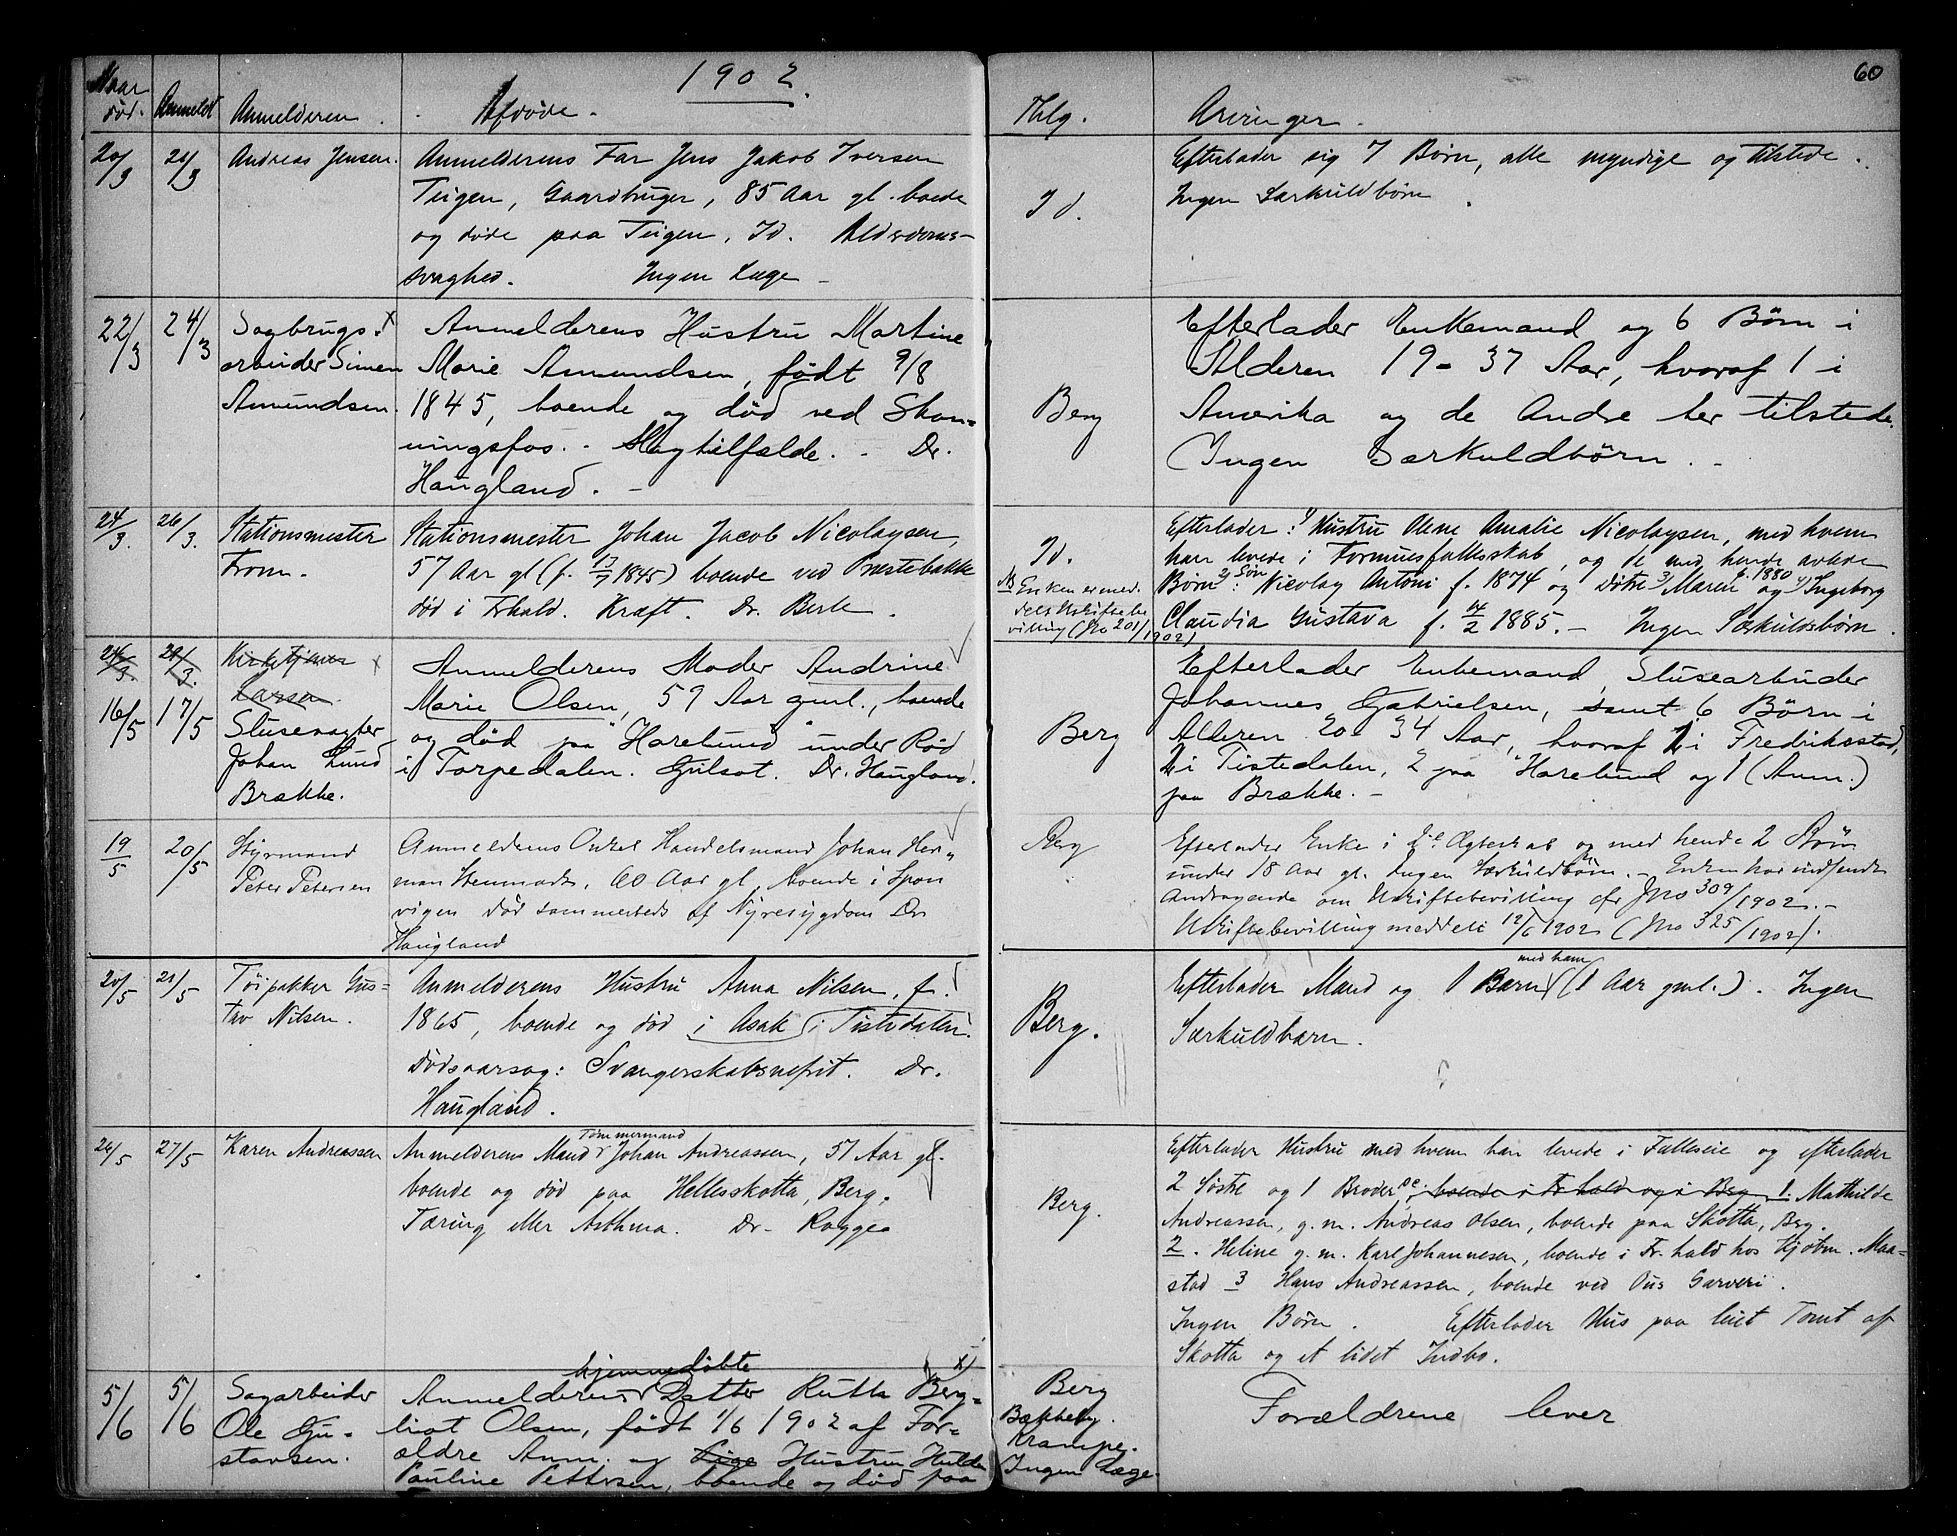 1902.
60
Naar død. Anmeldt Anmelderen. Afdøde. Thlg. Arvinger.
20/3 21/3 Andreas Jensen.
Anmelderens Far Jens Jakob Iversen
Teigen, Gaardbruger, 85 Aar gl. boede
og døde paa Teigen, Id. Alderdoms-
svaghed. Ingen Læge -
Id.
Efterlader sig 7 Børn, alle myndige og tilstede.
Ingen Særkuldbørn.
22/3 24/3 Sagbrugs-
arbeider Simen
Amundsen.
Anmelderens Hustru Martine
Marie Amundsen, født 9/8
1845, boende og død ved Skon-
ningsfos. - Slagtilfælde. - Dr.
Haugland. -
Berg
Efterlader Enkemand og 6 Børn i
Alderen 19 - 37 Aar, hvoraf 1 i
Amerika og de Andre her tilstede.
Ingen Særkuldbørn. -
24/3. 26/3. Stationsmester
From.
Stationsmester Johan Jacob Nicolaysen,
57 Aar gl (f. 13/7 1845) boende ved Præstebakke
død i Frhald. Kræft. Dr. Berle.
Id.
NB Enken er med-
delt Uskiftebe-
villing (Jno 201/1902)
Efterlader: 1) Hustru Olene Amalie Nicolaysen, med hvem
han levede i Formuesfællesskab, og de med hende avlede
Børn: 2) Søn Nicolay Antoni f. 1874 og Døtre 3) Maren f. 1880 og 4) Ingeborg
Claudia Gustava f. 14/2 1885. - Ingen Særkuldsbørn.
24/3. 29/3. Kirketjener
Larsen.
16/5 17/5 Slusevagter
Johan Lund
Brække.
Anmelderens Moder Andrine
Marie Olsen, 59 Aar gml., boende
og død paa "Harelund" under Rød
i Torpedalen. Gulsot. Dr. Haugland.
Berg
Efterlader Enkemand, Slusearbeider
Johannes Gabrielsen, samt 6 Børn i
Alderen 20 - 34 Aar, hvoraf 1 i Fredriksstad,
2 i Tistedalen, 2 paa "Harelund og 1 (Anm.)
paa Brække. -
19/5 20/5 Styrmand
Peter Petersen
Anmelderens Onkel Handelsmand Johan Her-
man 60 Aar gl boende i Spon
vigen død sammesteds af Nyresygdom Dr
Haugland
Berg
Efterlader Enke i Ægteskab og med hende 2 Børn
under 18 Aar gl. Ingen Særkuldbørn. - Enken har indsendt
Andragende om Uskiftebevilling cfr Jno 309/1902. -
Uskiftebevilling meddelt 12/6 1902 (Jno 325/1902).
20/5 21/5 Tøipakker Gus-
tav Nilsen.
Anmelderens Hustru Anna Nilsen, f.
1865, boende og død i Asak i Tistedalen.
Dødsaarsag: Svangerskabsnefrit. Dr.
Haugland.
Berg.
Efterlader Mand og 1 Barn med ham (1 Aar gml.). Ingen
Særkuldbarn.
26/5 27/5 Karen Andreassen
Anmelderens Mand Tømmermand Johan Andreassen, 51 Aar gl.
boende og død paa Hellesskotta, Berg.
Tæring eller Asthma. Dr. Rogge
Berg.
Efterlader Hustru med hvem han levede i Fælleseie og efterlader
2 Søstre og 1 Broder, boende i Fr.hald og i Berg 1. Mathilde
Andreassen, g.m. Andreas Olsen, boende paa Skotta, Berg.
2. Heline g.m. Karl Johannesen, boende i Fr.hald hos Kjøbm. Maa-
stad 3 Hans Andreassen, boende ved Ous Garveri.
Ingen Børn. Efterlader Hus paa leiet Tomt af
Skotta og et lidet Indbo.
5/6 5/6 Sagarbeider
Ole Gu-
stavsen.
Anmelderens hjemmedøbte Datter Ruth Berg-
liot Olsen, født 1/6 1902 af For-
ældre Anm. og Hustru Hulda
Pauline Pettersen, boende og død paa
Berg
Bækkeby.
Krampe.
Ingen Læge.
Forældrene lever